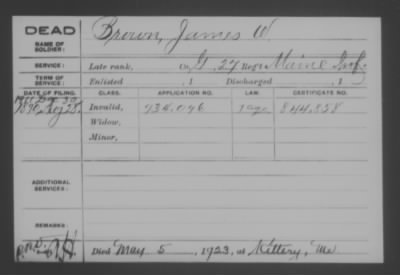 DEAD
NAME OF SOLDIER: Brown, James W
SERVICE: Late rank, Co. G, 27 Reg't Maine Inf.
TERM OF SERVICE: Enlisted , 1 Discharged , 1
DATE OF FILING. CLASS. APPLICATION NO. LAW. CERTIFICATE NO.
1890 Aug 25. Invalid, 934.046 844.858
Widow,
Minor,
ADDITIONAL SERVICES:
REMARKS:
Died May 5, 1923, at Kittery, Me.